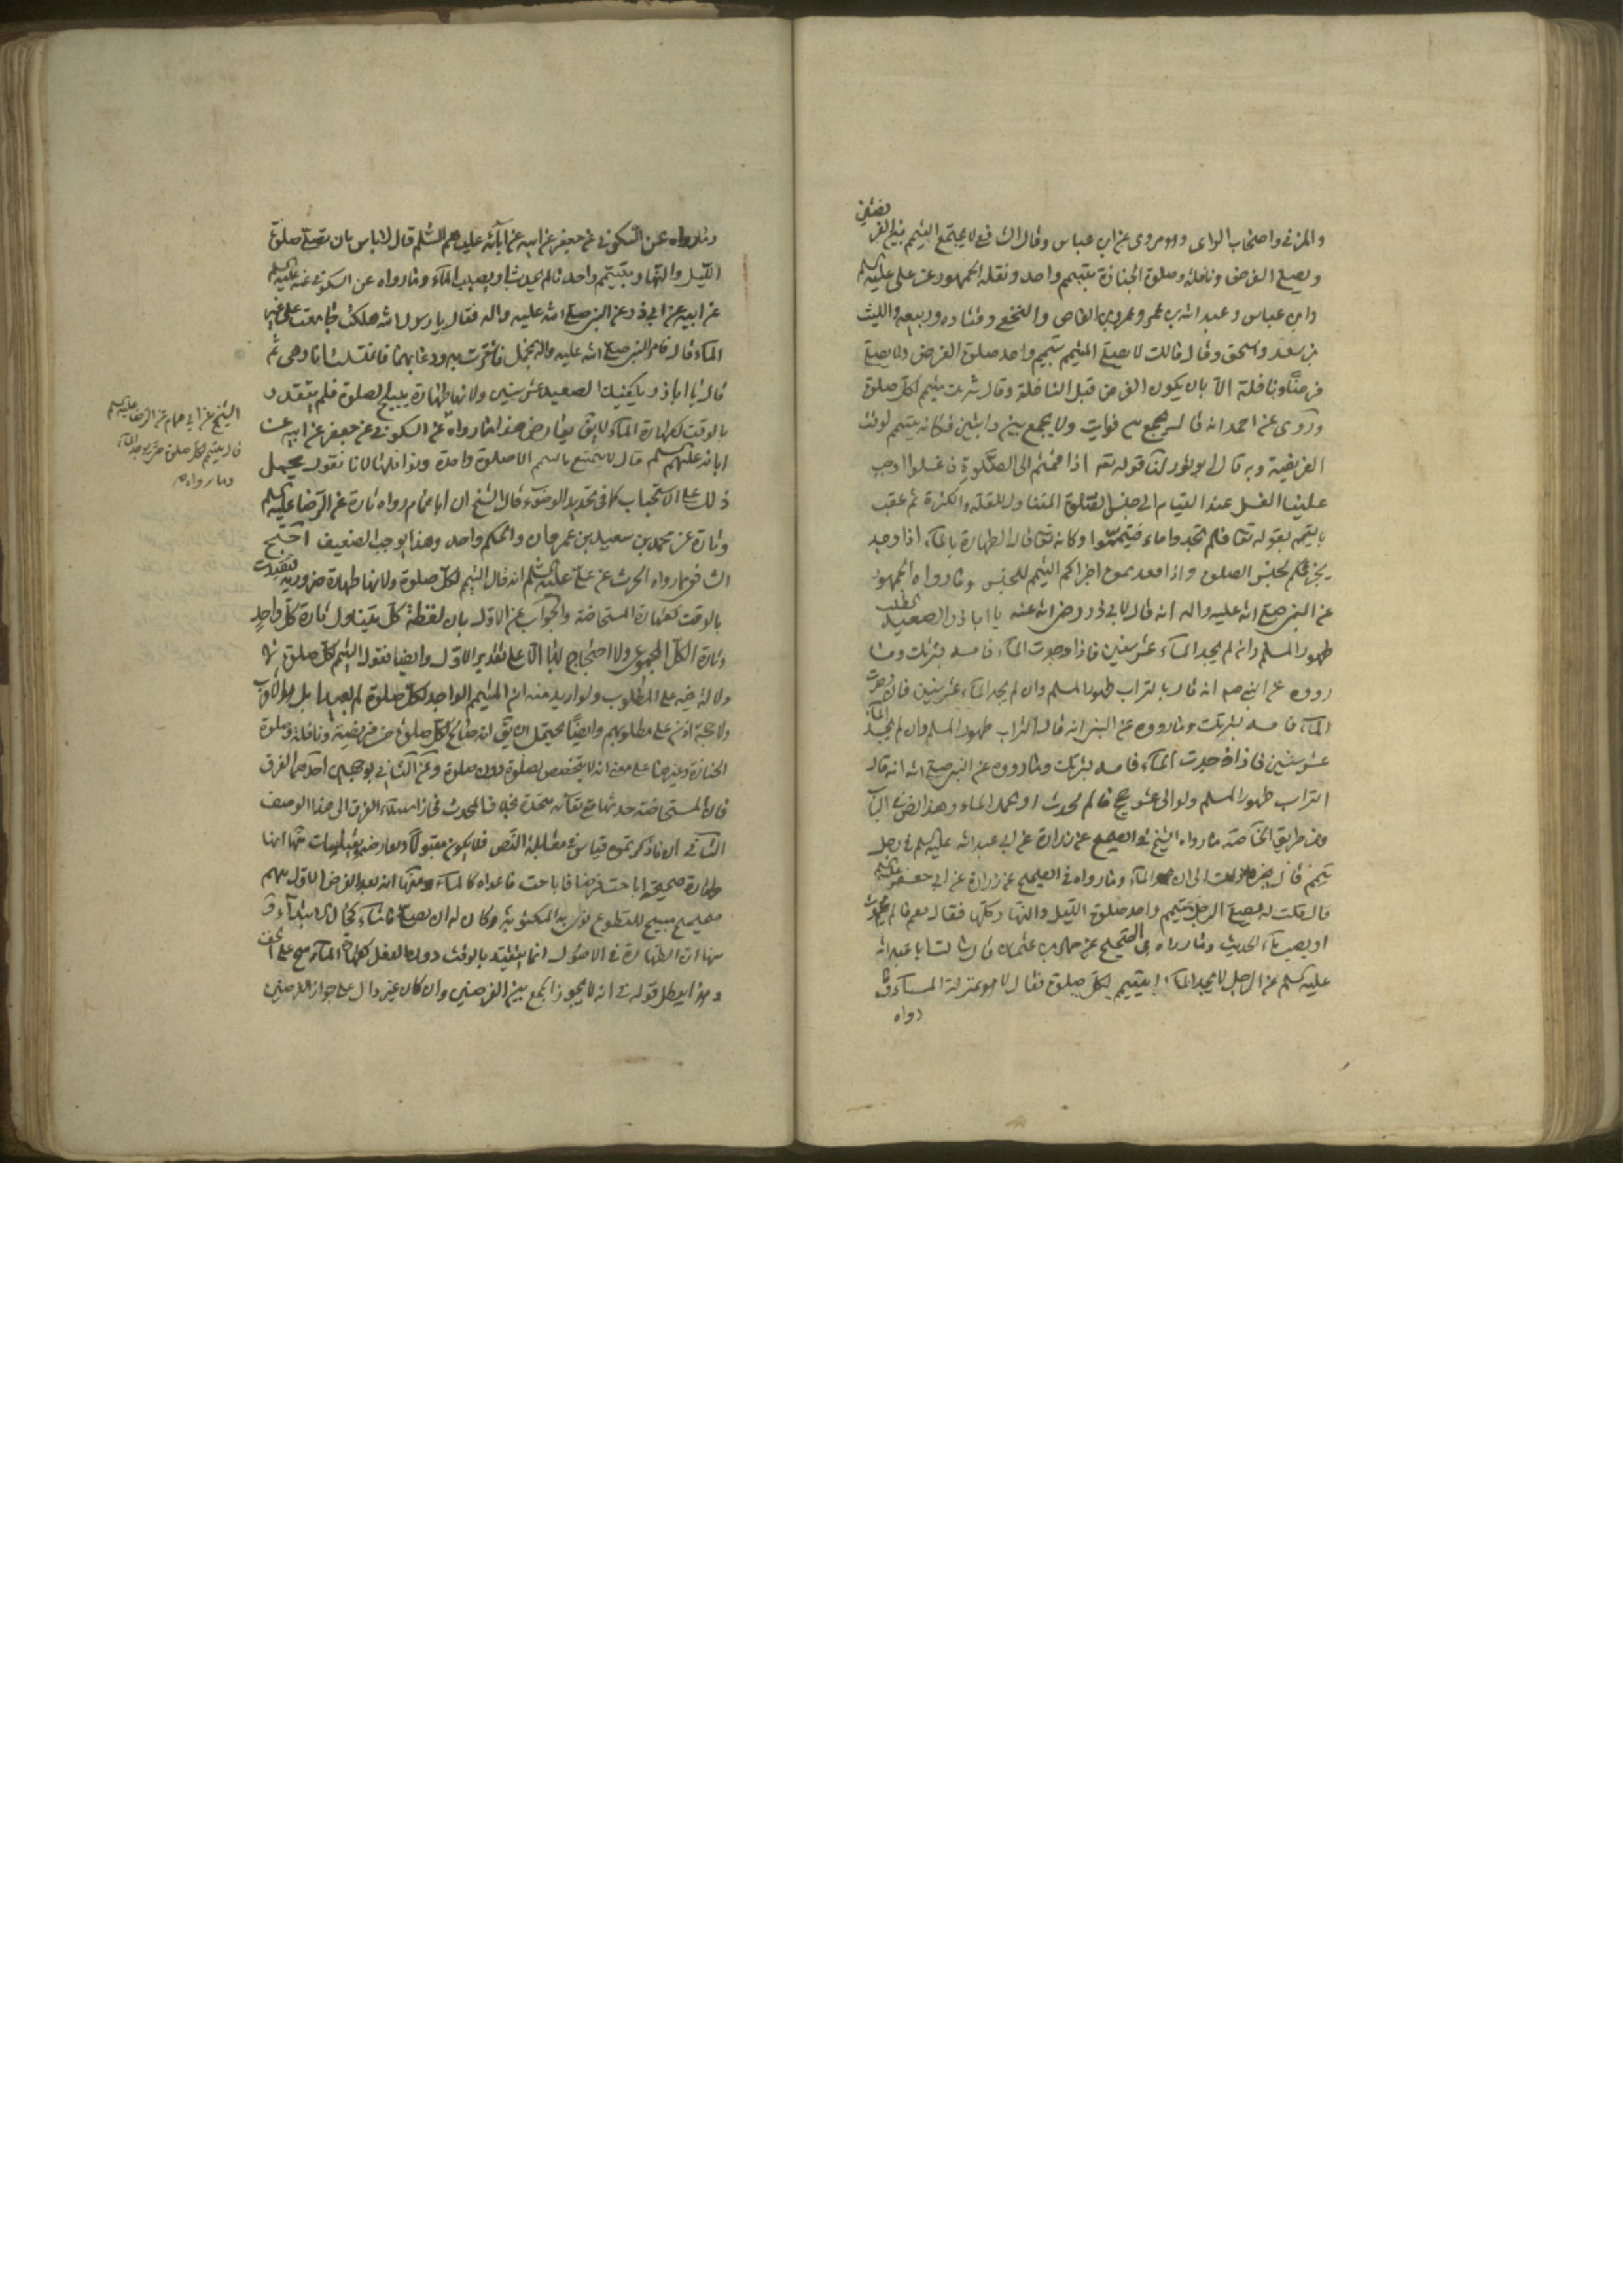 والمزني واصحاب الراى وهو مروى عن ابن عباس وقال الشافعي لا يجتمع التيمم بين الفريضتين
ويصلي الفرض ونافلة وصلوة الجنازة بتيمم واحد ونقله الجمهور عن علي عليه السلم
وابن عباس وعبد الله بن عمر وعمرو بن العاص والنخعي وقتاده وربيعه والليث
بن سعد واسحق وقال مالك لا يصلي المتيمم بتيمم واحد صلوة الفرض ولا يصلي
فرضًا ونافلة الا بان يكون الفرض قبل النافلة وقال شريك يتيمم لكل صلوة
وروى عن احمد انه قال يجمع بين فوايت ولا يجمع بين راتبتين فكانه يتيمم لوقت
الفريضة وبه قال ابو ثور لنا قوله تعم اذا قمتم الى الصلوة فاغسلوا اوجب
علينا الغسل عند القيام الى جنس الصلوة المتناول للقلة والكثرة ثم عقب
بالتيمم بقوله تعا فلم تجدوا ماء فتيمموا وكانه تعا قال الطهارة بالماء اذا وجد
يجزيكم لجنس الصلوة واذا فقدتموه اجزاكم التيمم للجنس وما رواه الجمهور
عن النبي صلى الله عليه واله انه قال لابي ذر رضى الله عنه يا ابا ذر الصعيد الطيب
طهور المسلم وان لم يجد الماء عشر سنين فاذا وجدت الماء فامسه بشرتك وما
رووه عن النبي صم انه قال بالتراب طهور المسلم وان لم يجد الماء عشر سنين فان وجدت
الماء فامسه بشرتك وما رووه عن النبي انه قال التراب طهور المسلم وان لم يجد الماء
عشر سنين فاذا وجدت الماء فامسه بشرتك وما رووه عن النبي صلى الله انه قال
التراب طهور المسلم ولو الى عشر حجج فالم يحدث او يجد الماء وهذا نص في الباب
ومن طريق الخاصة ما رواه الشيخ في الصحيح عن زرارة عن ابي عبد الله عليه السلم في رجل
تيمم قال يجزيه ذلك الى ان يجد الماء وما رواه في الصحيح عن زرارة عن ابي جعفر عليه السلم
قال قلت له يصلي الرجل بتيمم واحد صلوة الليل والنهار كلها فقال نعم مالم يحدث
او يصيب ماء الحديث وما رواه في الصحيح عن حماد بن عثمان قال سالت ابا عبد الله
عليه السلم عن الرجل لا يجد الماء ايتيمم لكل صلوة فقال لا هو بمنزلة الماء وما
رواه
وما رواه عن السكوني عن جعفر عن ابيه عن آبائه عليهم السلم قال لا باس بان تصلي صلوة
الليل والنهار بتيمم واحد مالم يحدث او يصيب الماء وما رواه عن السكوني عنه عليه السلم
عن ابيه عن ابي ذر عن النبي صلى الله عليه واله فقال يا رسول الله هلكت جامعت على غير
الماء قال فامر النبي صلى الله عليه واله بمحمل فاستترت به ودعا بماء فاغتسلت انا وهى ثم
قال يا ابا ذر يكفيك الصعيد عشر سنين ولانها طهارة يبيح الصلوة فلم يتقدر
بالوقت كطهارة الماء لا يق يعارض هذا ما رواه عن السكوني عن جعفر عن ابيه عن
ابائه عليهم السلم قال لا يتمتع بالتيمم الا صلوة واحدة ونوافلها لانا نقول يحمل
ذلك على الاستحباب كما في تجديد الوضوء قال الشيخ ان ابا همام رواه تارة عن الرضا عليه السلم
وتارة عن محمد بن سعيد بن غزوان والحكم واحد وهذا يوجب الضعيف احتج
الشافعي بما رواه الحرث عن علي عليه السلم انه قال التيمم لكل صلوة ولانها طهارة ضرورية فتقيدت
بالوقت كطهارة المستحاضة والجواب عن الاول بان لفظة كل يتناول تارة كل واحد
وتارة الكل المجموعى ولا احتجاج لنا الا على تقدير الاول وايضا فقوله التيمم لكل صلوة لا
دلالة فيه على المطلوب ولو اريد منه ان المتيمم الواجد لكل صلوة لم يبعد
ولا حجة اذن على مطلوبهم وايضًا يحتمل ان يق انه صالح لكل صلوة من فريضة ونافلة وصلوة
الجنازة وغيرها على معنى انه لا يتخصص بصلوة دون صلوة وعن الثاني بوجهين احدهما الفرق
فان المستحاضة حدثها مع بقائه متجدد بخلاف المحدث فجاز استناد الفرق الى هذا الوصف
الثاني ان ما ذكرتموه قياس في مقابلة النص فلا يكون مقبولًا ومعارض بقياسات منها انها
طهارة صحيحة اباحت فرضا فاباحت ما عداه كالماء ومنها انه بعد الفرض الاول تيمم
صحيح مبيح للتطوع نوى به المكتوبة وكان له ان يصلي ما شاء كحال ابتدائه و
منها ان الطهارة في الاصول انما يتقيد بالوقت دون الفعل كطهارة الماسح على الخف
وهذا يبطل قوله في انه لا يجوز الجمع بين الفرضين وان كان غير دال على جواز الفرضين
الشيخ عن ابي همام عن الرضا عليه السلم
قال يتيمم لكل صلوة حتى يوجد الماء
وما رواه